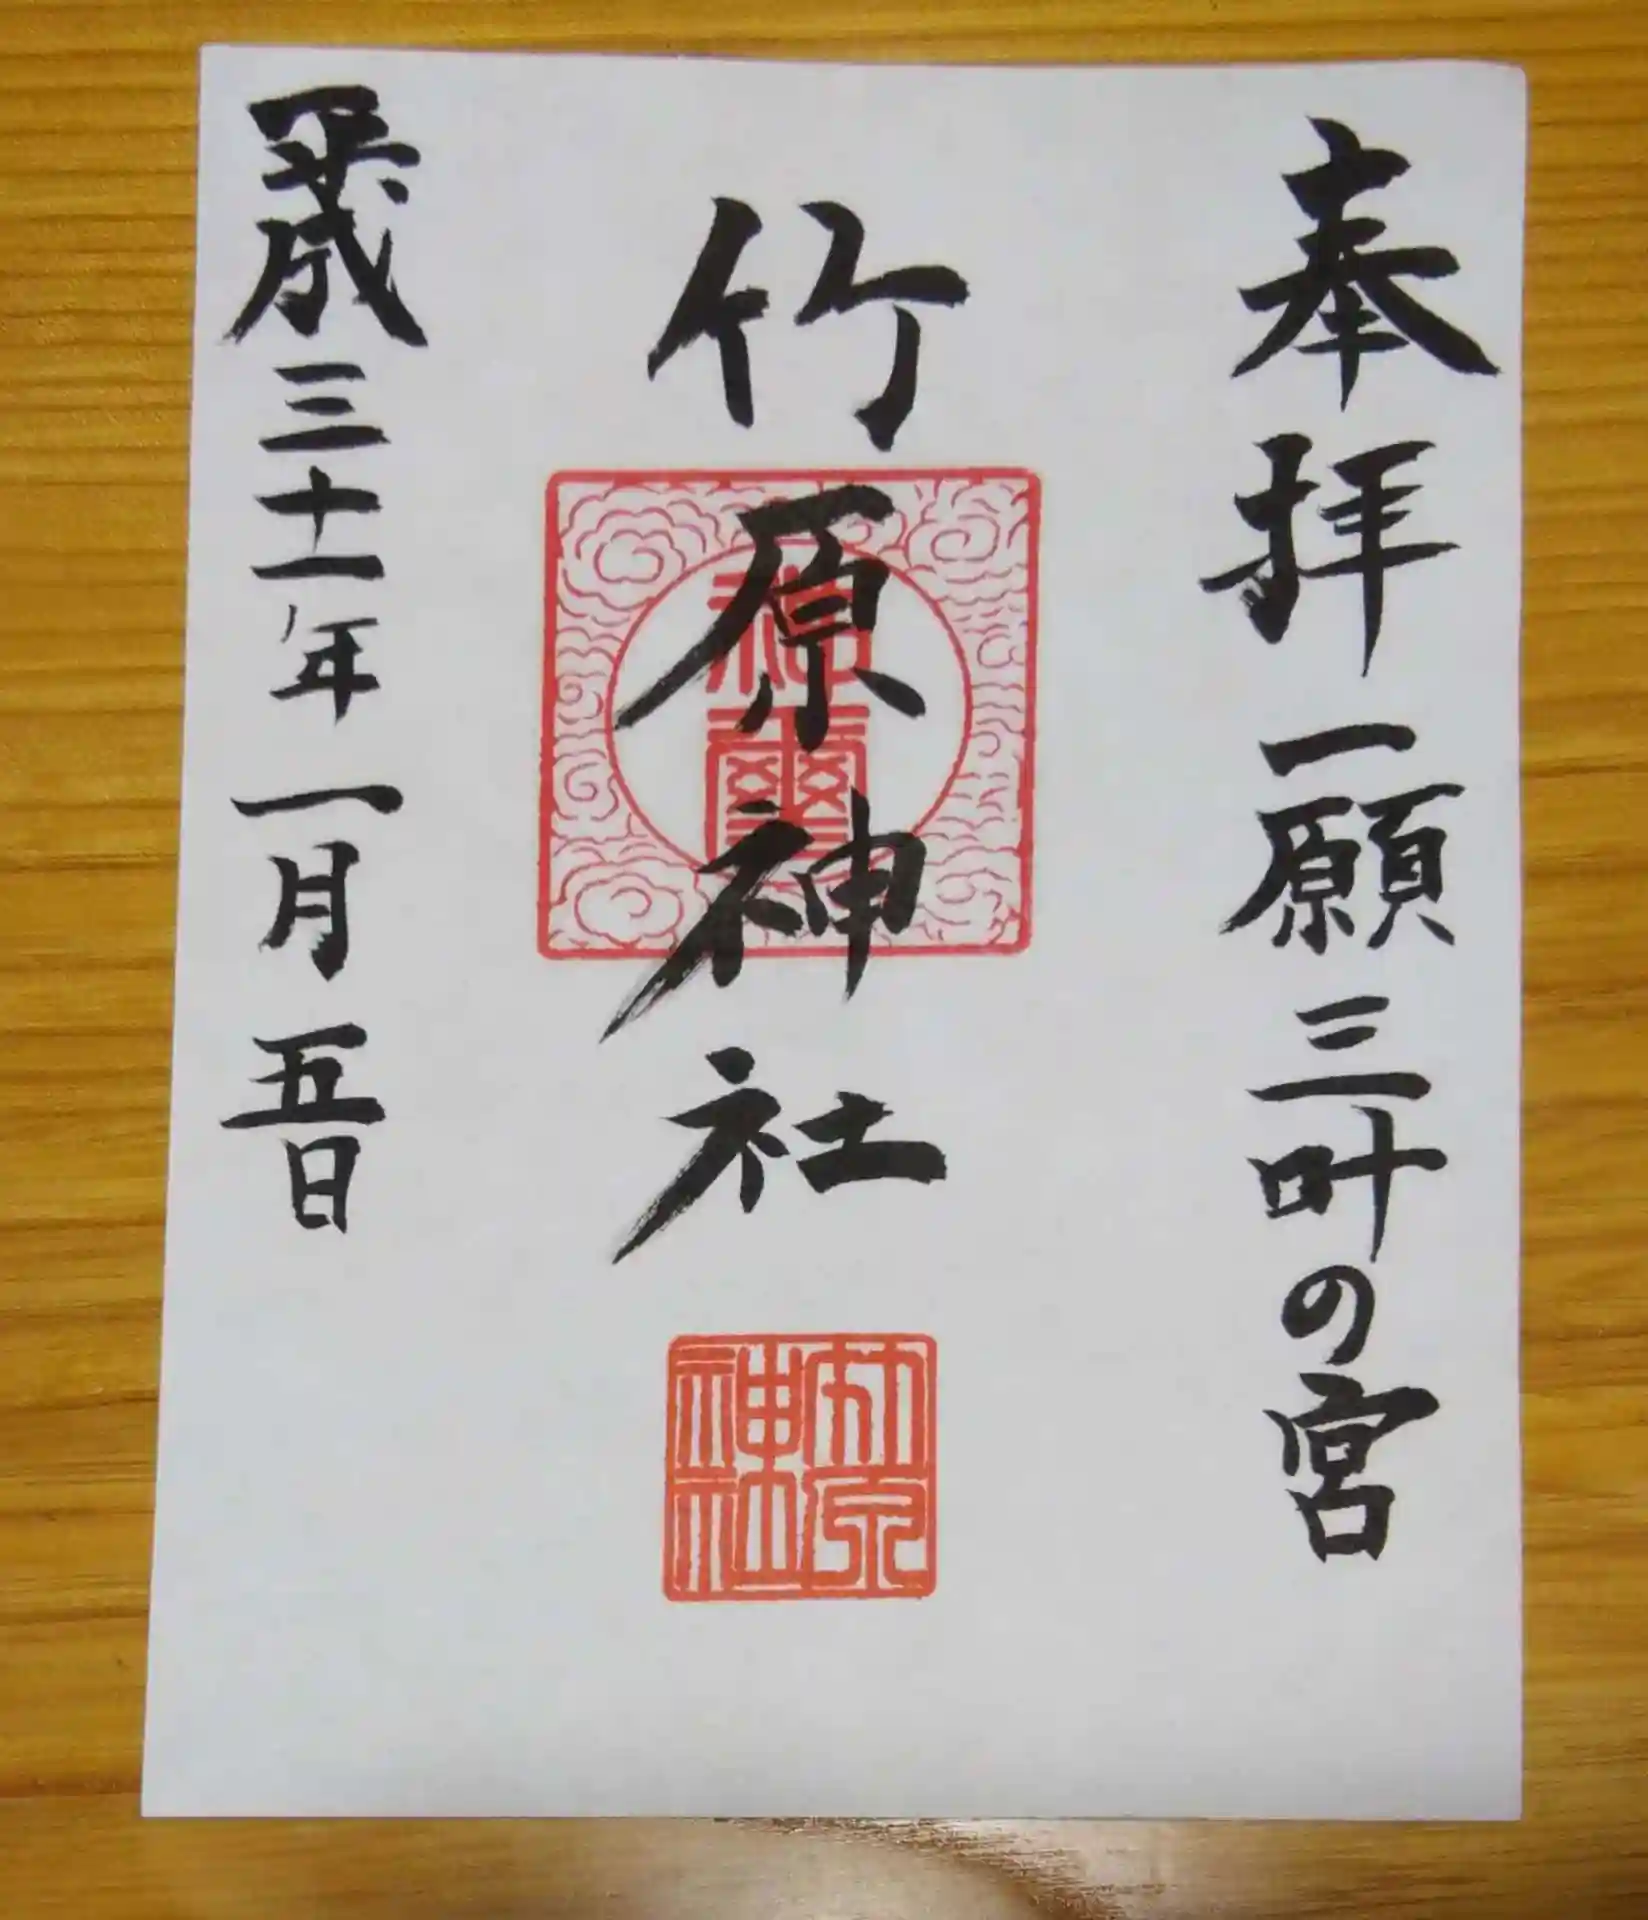 奉拝 一願三叶の宮
竹原神社
神璽
竹原
神社
平成三十一年一月五日